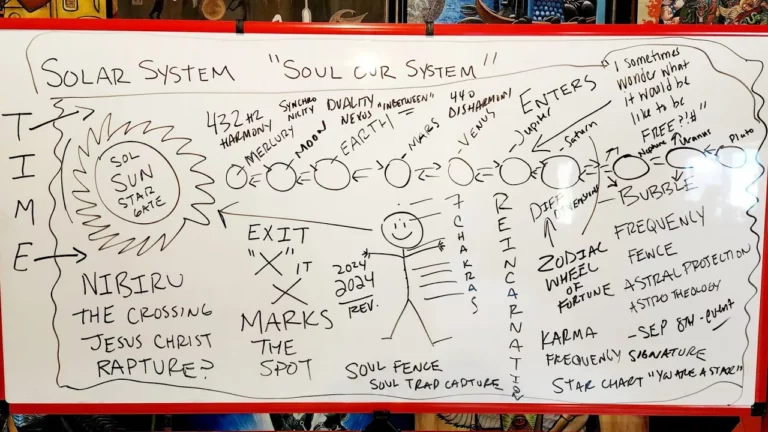 SOLAR SYSTEM "SOUL CUR SYSTEM"
I sometimes
wonder what
it would be
like to be
FREE?!#"
TIME
SOL
SUN
STAR
GATE
432 HZ
HARMONY
MERCURY
SYNCHRO
NICITY
MOON
DUALITY
NEXUS
EARTH
"INBETWEEN"
MARS
440
DISHARMONY
VENUS
ENTERS
Jupiter
Saturn
Neptune
Uranus
Pluto
NIBIRU
THE CROSSING
JESUS CHRIST
RAPTURE?
EXIT
"X" IT
X
MARKS
THE
SPOT
2024
2024
REV.
7 CHAKRAS
SOUL FENCE
SOUL TRAP CAPTURE
REINCARNATION
DIFF
DIMENSIONS
ZODIAC
WHEEL
OF
FORTUNE
BUBBLE
FREQUENLY
FENCE
ASTRAL PROJECTION
ASTROTHEOLOGY
KARMA
- SEP 8TH - event
FREQUENLY SIGNATURE
STAR CHART "YOU ARE A STAR"